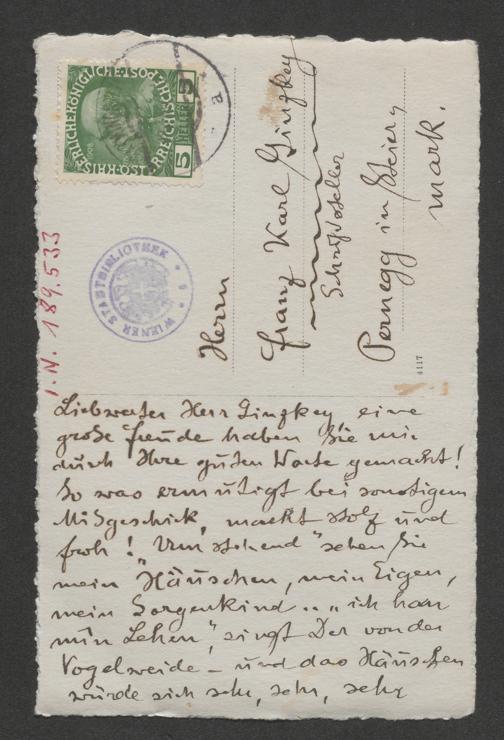 KAISERLICHE KÖNIGLICHE
ÖSTERREICHISCHE POST
5 HELLER 5
I.N. 189.533
WIENER STADTBIBLIOTHEK
Herrn
Franz Karl Ginzkey
Schriftsteller
Pernegg in Steier,
mark.
4117
Liebwerter Herr Ginzkey, eine
große Freude haben Sie mir
durch Ihre guten Worte gemacht!
So was ermutigt bei sonstigem
Mißgeschick, macht stolz und
froh! Umstehend sehen Sie
mein "Häuschen, mein Eigen,
mein Sorgenkind .. "ich han
min Lehen", singt Der von der
Vogelweide – und das Häuschen
würde sich sehr, sehr, sehr